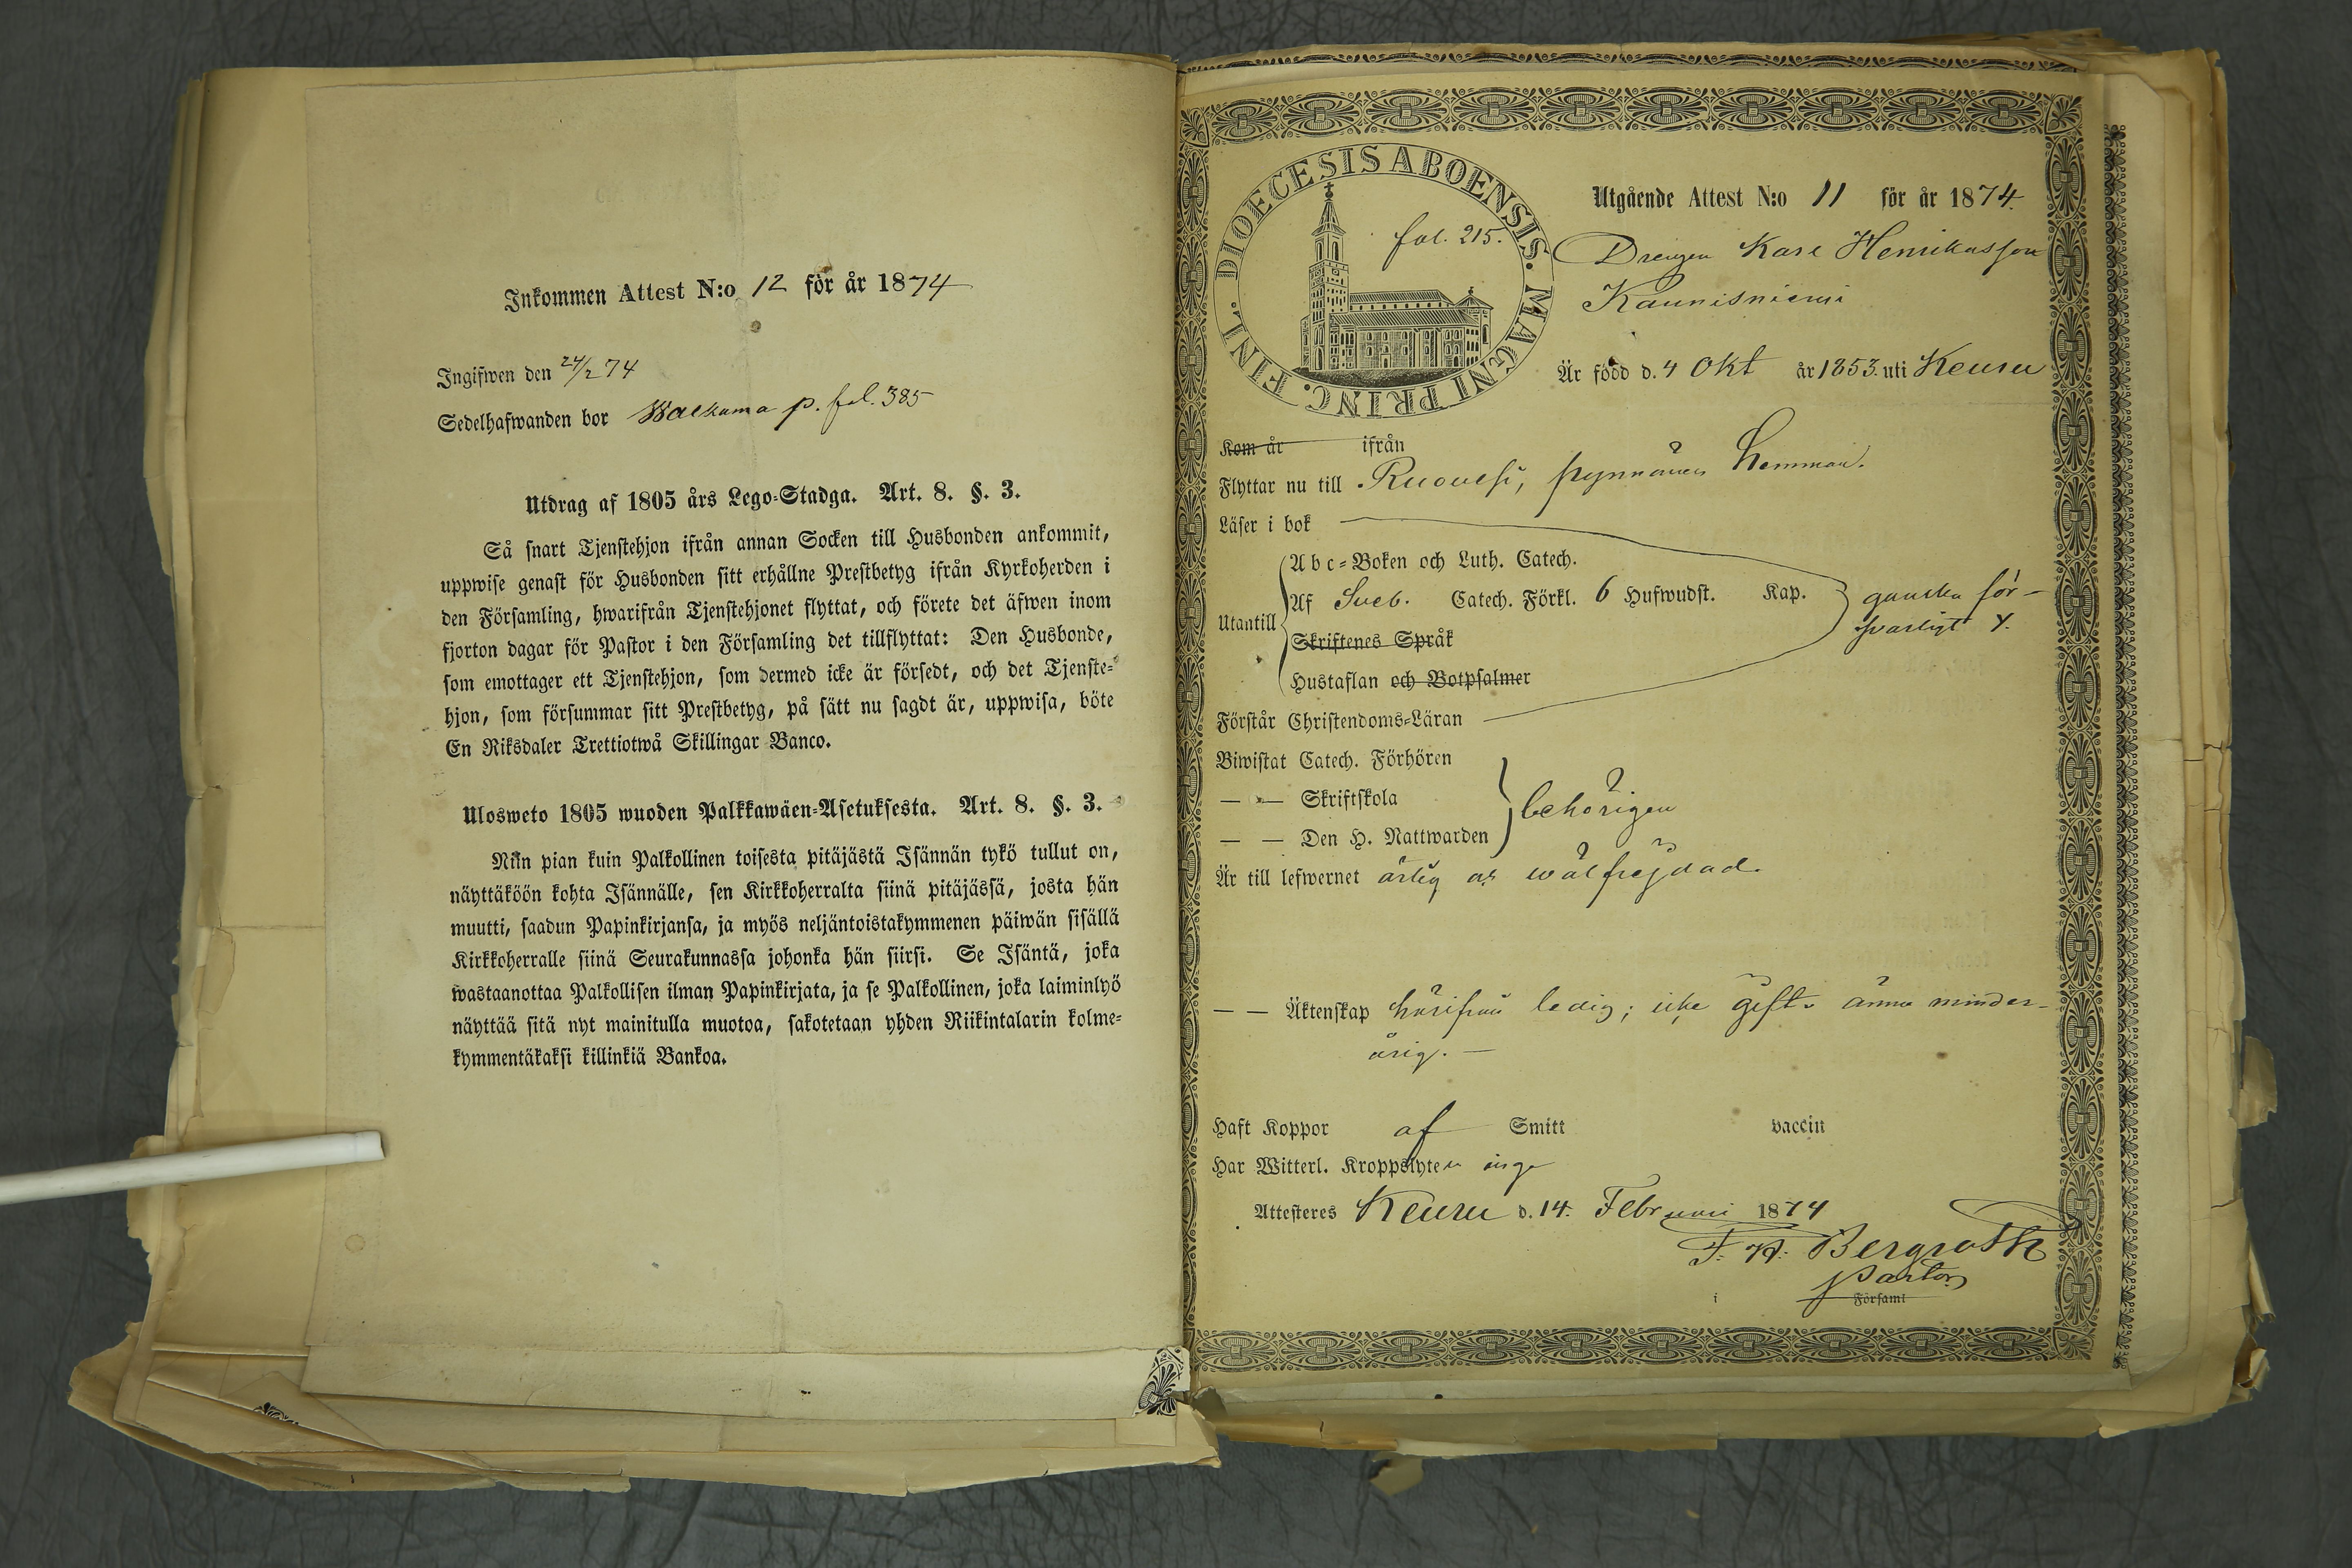 Inkommen Attest N:o 12 för år 1874
Ingifwen den 24/2 74
Sedelhafwanden bor Walkama p. fol. 385
Utdrag af 1805 års Lego-Stadga. Art. 8. §. 3.
Så snart Tjenstehjon ifrån annan Socken till Husbonden ankommit,
uppwise genast för Husbonden sitt erhållne Prestbetyg ifrån Kyrkoherden i
den Församling, hwarifrån Tjenstehjonet flyttat, och förete det äfwen inom
fjorton dagar för Pastor i den Församling det tillflyttat: Den Husbonde,
som emottager ett Tjenstehjon, som dermed icke är försedt, och det Tjenste-
hjon, som försummar sitt Prestbetyg, på sätt nu sagdt är, uppwisa, böte
En Riksdaler Trettiotwå Skillingar Banco.
Ulosweto 1805 wuoden Palkkawäen-Asetuksesta. Art. 8. §. 3.
Niin pian kuin Palkollinen toisesta pitäjästä Isännän tykö tullut on,
näyttäköön kohta Isännälle, sen Kirkkoherralta siinä pitäjässä, josta hän
muutti, saadun Papinkirjansa, ja myös neljäntoistakymmenen päiwän sisällä
Kirkkoherralle siinä Seurakunnassa johonka hän siirsi. Se Isäntä, joka
wastaanottaa Palkollisen ilman Papinkirjata, ja se Palkollinen, joka laiminlyö
näyttää sitä nyt mainitulla muotoa, sakotetaan yhden Riikintalarin kolme-
kymmentäkaksi killinkiä Bankoa.
DIOECESIS ABOENSIS. MAGNI PRINC. FINL.
fol. 215.
Utgående Attest N:o 11 för år 1874.
Drengen Karl Henriksson
Kaunisniemi
Är född d. 4 Okt år 1853. uti Keuru
Kom år ifrån
Flyttar nu till Ruovesi, Pynnönen hemman.
Läser i bok
Abc-Boken och Luth. Catech.
Utantill Af Sveb. Catech. Förkl. 6 Hufwudst. Kap. ganska för-
svarligt
Skriftenes Språk
Hustaflan och Botpsalmer
Förstår Christendoms-Läran
Biwistat Catech. Förhören
— — Skriftskola behörigen
— — Den H. Nattwarden
Är till lefwernet ärlig och wälfrejdad.
— — Äktenskap härifrån ledig; icke gift. ännu minder-
årig. —
Haft Koppor af Smitt vaccin
Har Witterl. Kroppslyten inga
Attesteres Keuru d. 14. Februari 1874
F. W. Bergroth
Pastor
i Församl